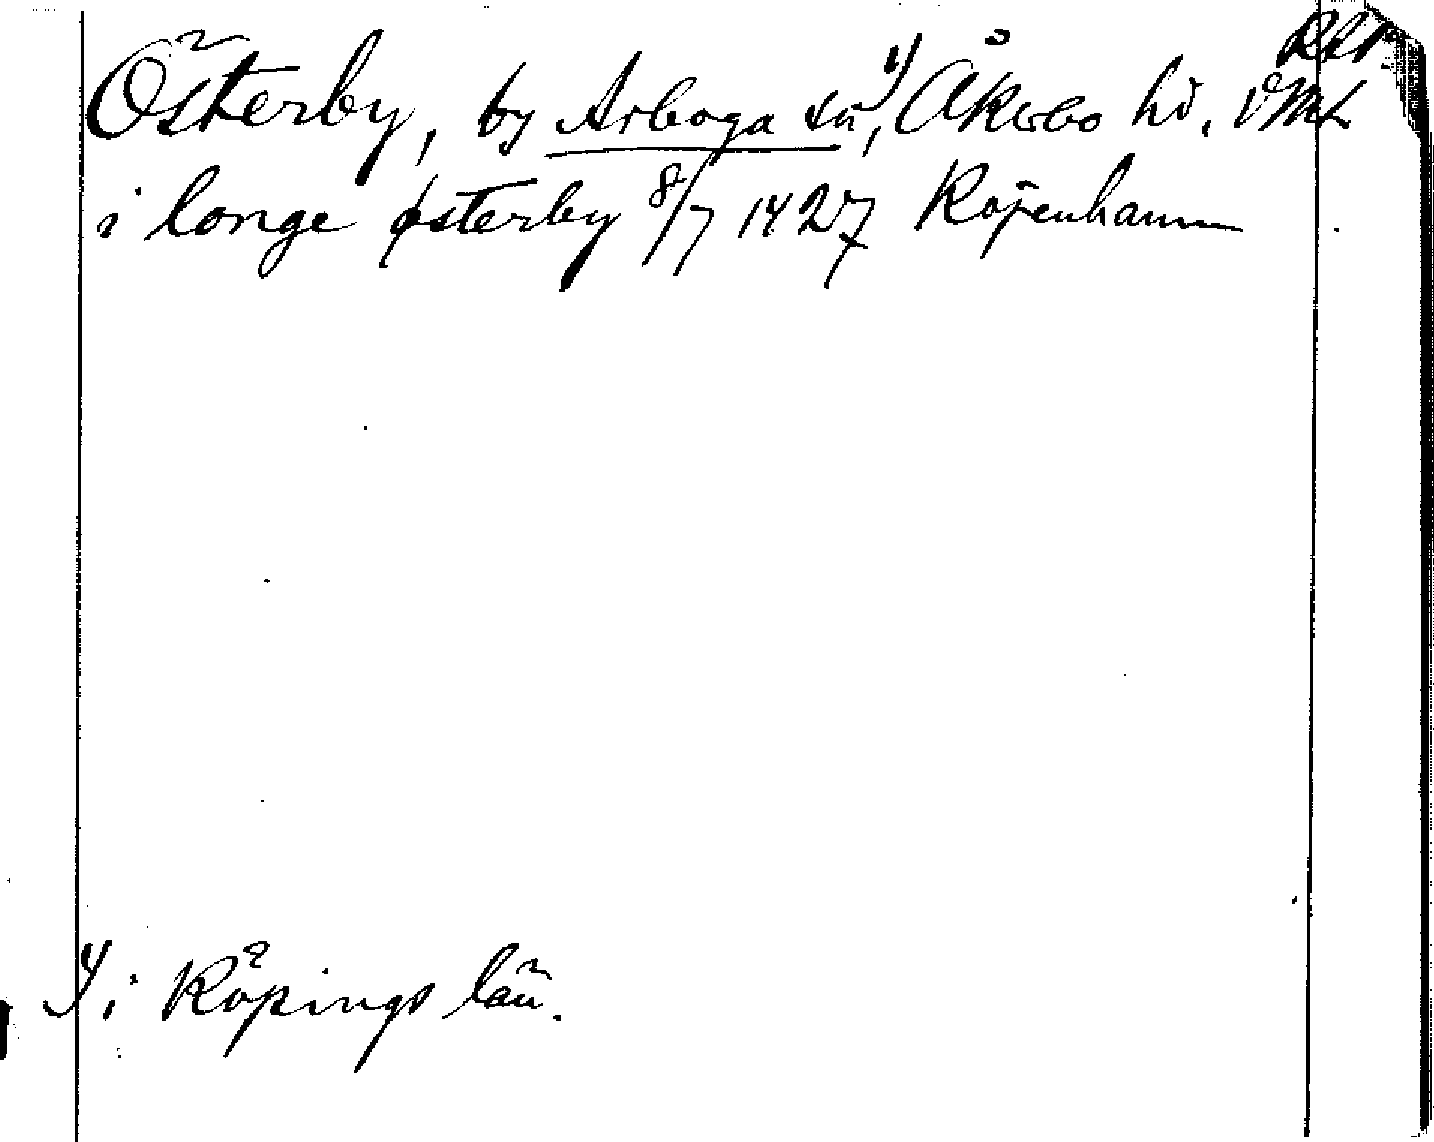 Österby, by Arboga sn,¹⁾ Åkerbo hd, VML
i longe østerby 8/7 1427 Köpenhamn
¹⁾ i Köpings län.